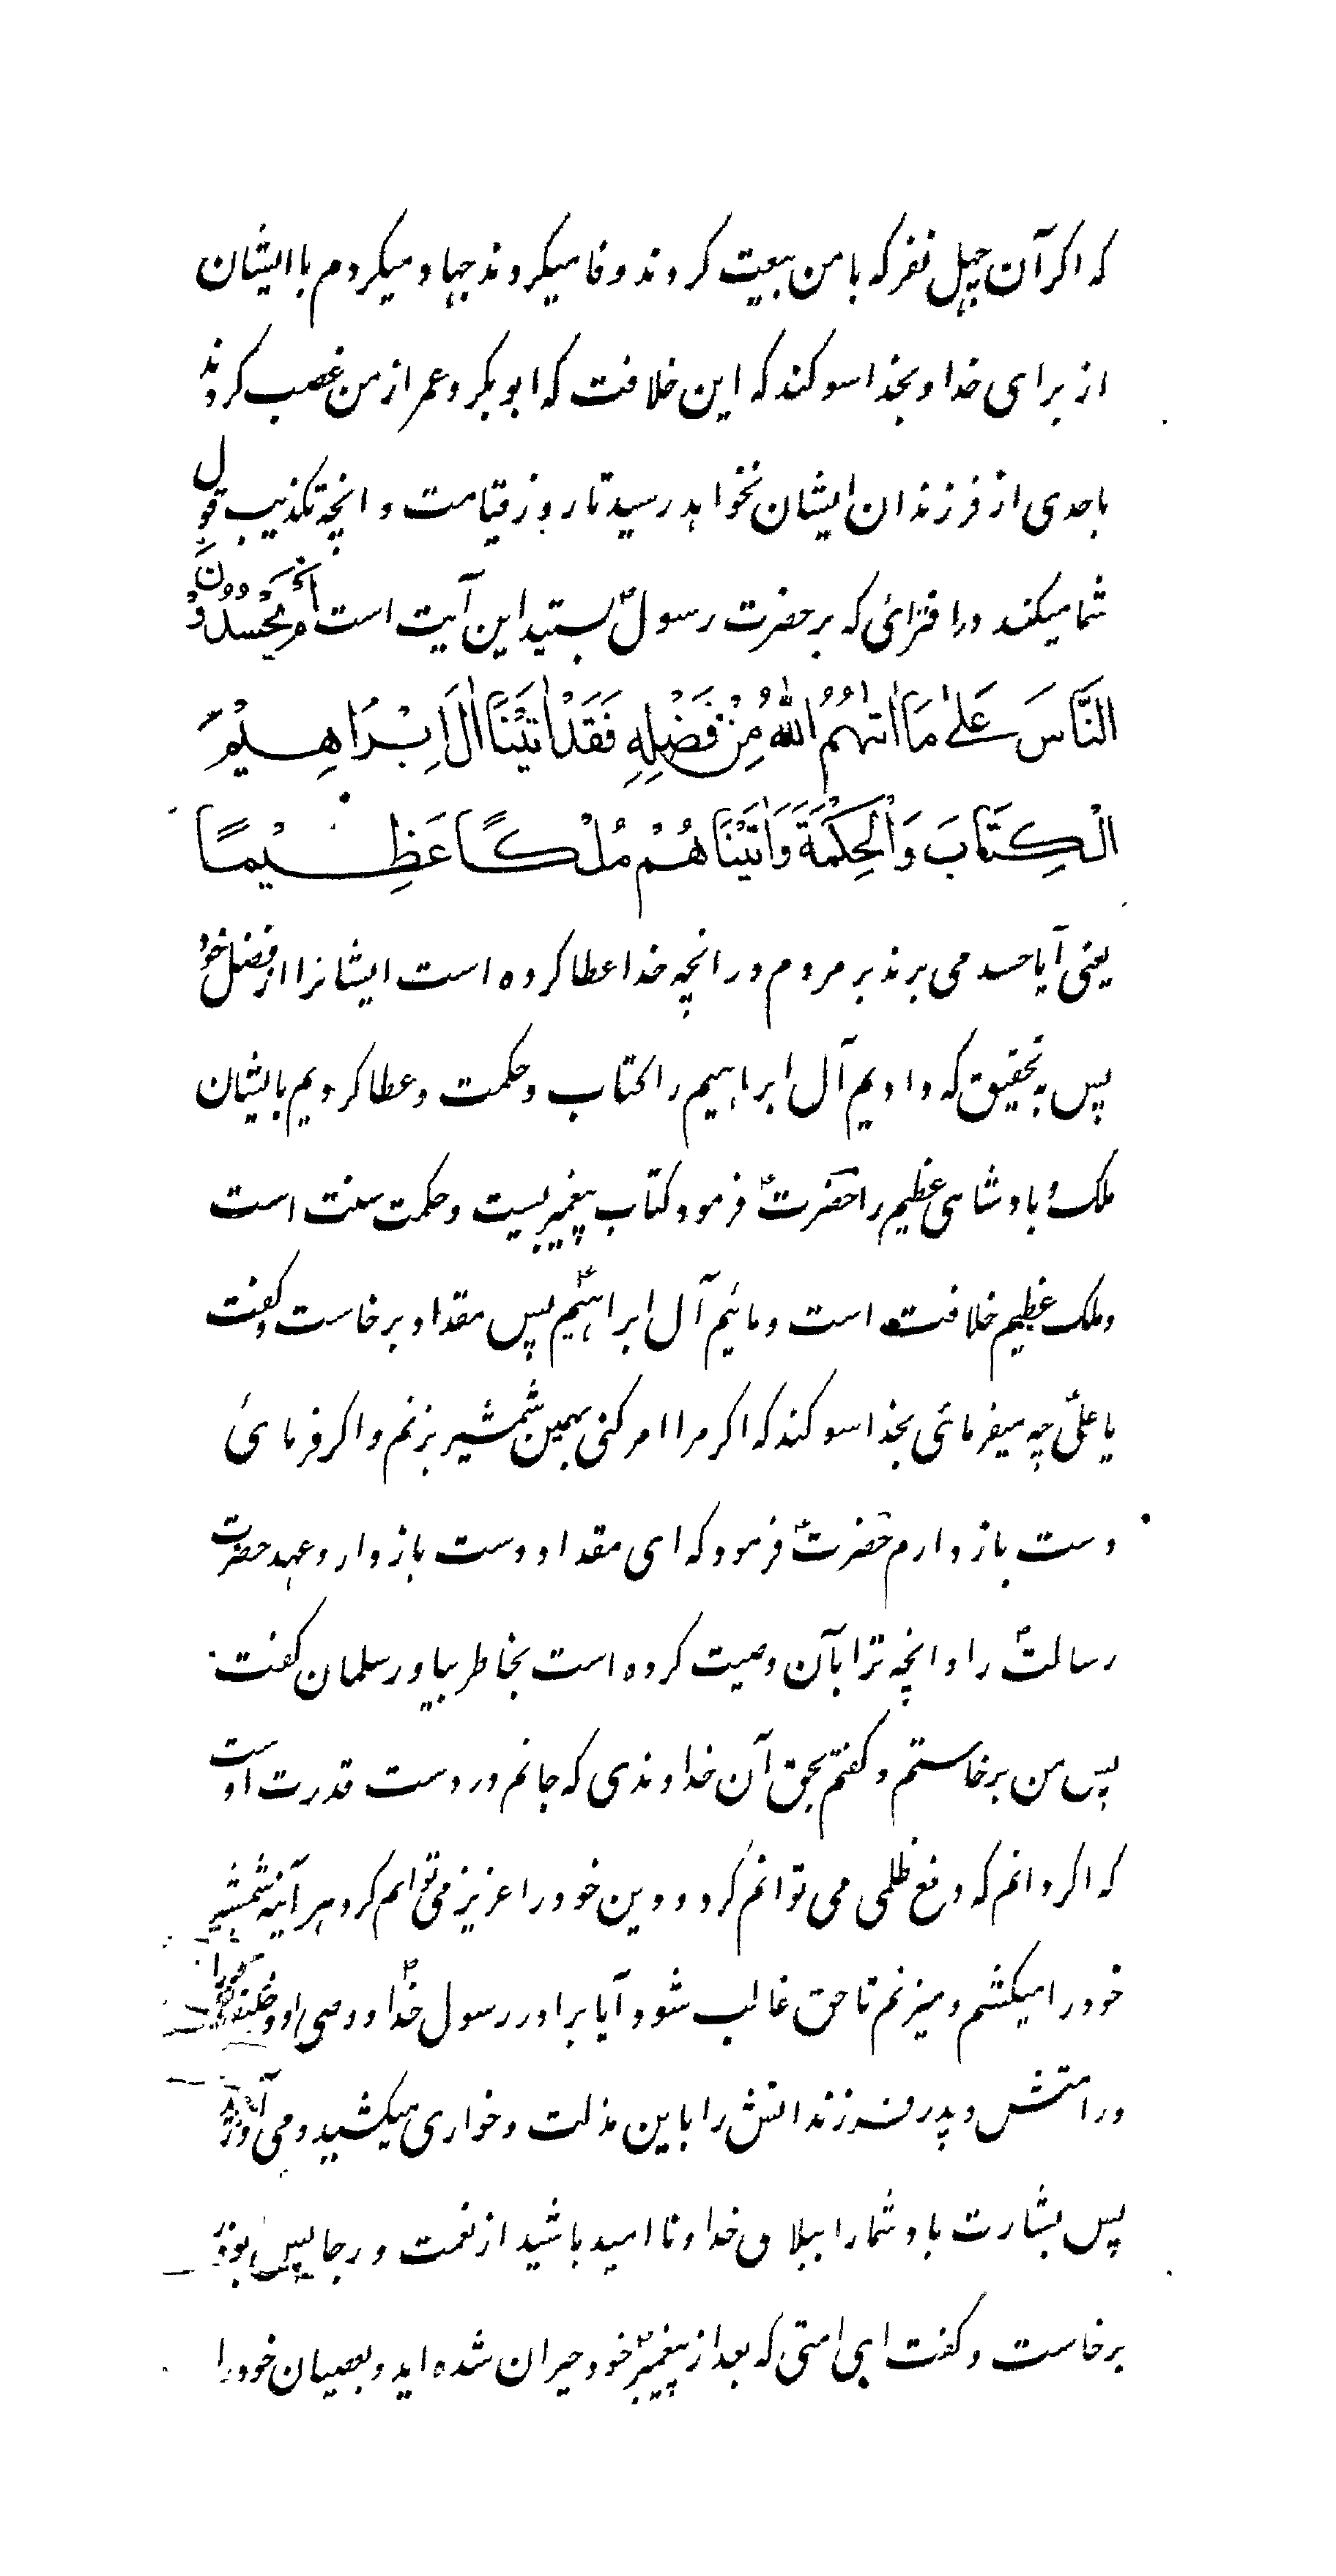 که اکر آن چهل نفر که با من بیعت کردند وفا میکردند جهاد میکردم با ایشان
از برای خدا و بخدا سوکند که این خلافت که ابوبکر و عمر از من غصب کردند
باحدی از فرزندان ایشان نخواهد رسید تا روز قیامت و انچه تکذیب قول
شما میکند در افترائی که بر حضرت رسولؐ بستید این آیت است اَمْ یَحْسُدُوْنَ
النَّاسَ عَلٰی مَا اٰتٰهُمُ اللّٰهُ مِنْ فَضْلِهٖ فَقَدْ اٰتَیْنَا اٰلَ اِبْرَاهِیْمَ
الْکِتَابَ وَالْحِکْمَةَ وَاٰتَیْنَاهُمْ مُلْکًا عَظِیْمًا
یعنی آیا حسد می برند بر مردم در انچه خدا عطا کرده است ایشانرا از فضل خود
پس به تحقیق که دادیم آل ابراهیم را کتاب و حکمت و عطا کردیم بایشان
ملک و بادشاهی عظیم را حضرتؑ فرمود کتاب پیغمبریست و حکمت سنت است
و ملک عظیم خلافت است و مائیم آل ابراهیمؑ پس مقداد برخاست و کفت
یا علیؑ چه میفرمائی بخدا سوکند که اکر مرا امر کنی بهمین شمشیر بزنم و اکر فرمائی
دست باز دارم حضرتؑ فرمود که ای مقداد دست باز دار و عهد حضرت
رسالتؐ را و انچه ترا بآن وصیت کرده است بخاطر بیاور سلمان کفت
پس من برخاستم و کفتم بحق آن خداوندی که جانم در دست قدرت اوست
که اکر دانم که دفع ظلمی می توانم کرد و دین خود را عزیز می توانم کرد هر آینه شمشیر
خود را میکشم و میزنم تا حق غالب شود آیا برادر رسول خداؐ و وصی او و خلیفه
در امتش و پدر فرزندانش را باین مذلت و خواری میکشید و می آورید
پس بشارت باد شما را ببلای خدا و نا امید باشید از نعمت و رجا پس ابوذر
برخاست و کفت ای امتی که بعد از پیغمبرؐ خود حیران شده اید و بعصیان خود را